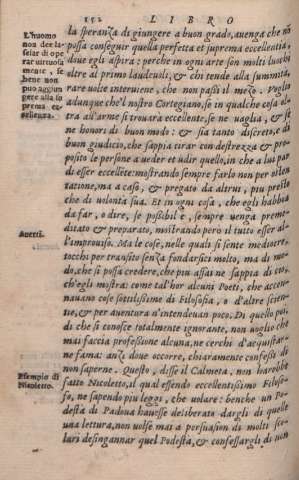 152 LIBRO
L'huomo
non dee la-
sciar di ope
rar virtuosa
mente, se
bene non
può aggiun
gere alla su
prema ec-
cellenza.
la speranza di giungere a buon grado, auenga che nō
possa conseguir quella perfetta et suprema eccellentia,
doue egli aspira: perche in ogni arte son molti luochi
oltre al primo laudeuoli, & chi tende alla summità,
rare uolte interuiene, che non passi il mezo. Voglio
adunque che'l nostro Cortegiano, se in qualche cosa ol-
tra all'arme si trouarà eccellente, se ne uaglia, & se
ne honori di buon modo: & sia tanto discreto, e di
buon giudicio, che sappia tirar con destrezza & pro-
posito le persone a ueder et udir quello, in che a lui par
di esser eccellēte: mostrando sempre farlo non per osten
tatione, ma a caso, & pregato da altrui, piu presto
che di uolontà sua. Et in ogni cosa, che egli habbia
da far, o dire, se possibil è, sempre uenga preme-
Auerti.
ditato & preparato, mostrando però il tutto esser al-
l'improuiso. Ma le cose, nelle quali si sente mediocre,
tocchi per transito senza fondarsici molto, ma di mo-
do, che si possa credere, che piu assai ne sappia di ciò,
ch'egli mostra: come tal'hor alcuni Poeti, che accen-
nauano cose sottilissime di Filosofia, o d'altre scien-
tie, & per auentura n'intendeuan poco. Di quello poi,
di che si conosce totalmente ignorante, non uoglio che
mai faccia professione alcuna, ne cerchi d'acquistar-
ne fama: anzi doue occorre, chiaramente confessi di
non saperne. Questo, disse il Calmeta, non harebbe
Esempio di
Nicoletto.
fatto Nicoletto, il qual essendo eccellentissimo Filoso-
fo, ne sapendo piu leggi, che uolare: benche un Po-
destà di Padoua hauesse deliberato dargli di quelle
una lettura, non uolse mai a persuasion di molti sco-
lari desingannar quel Podestà, & confessargli di non